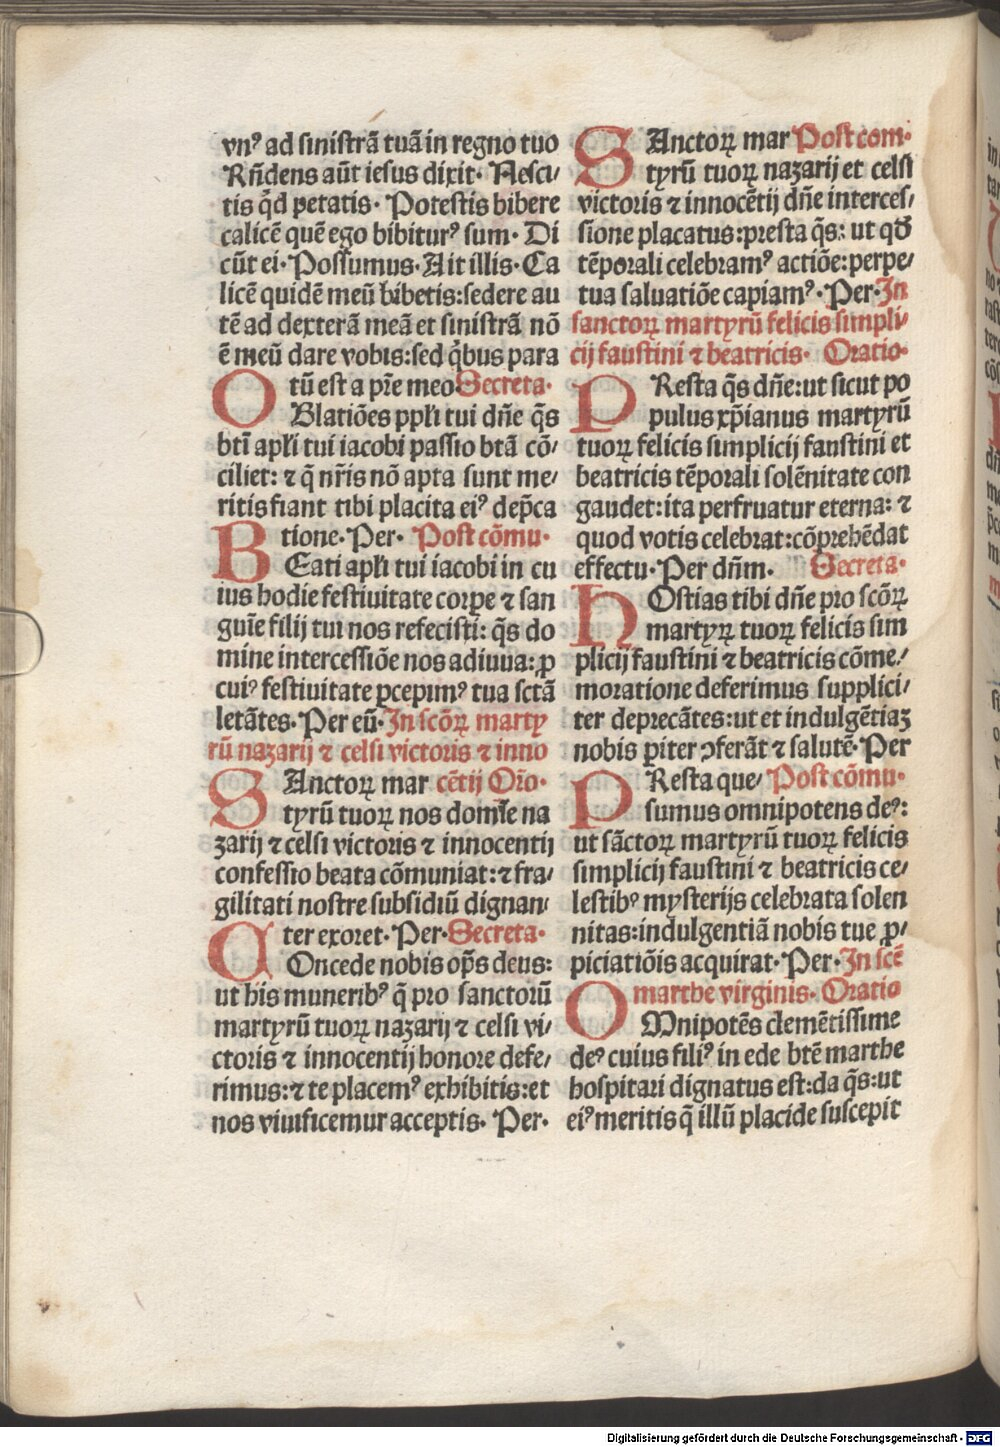 vnꝰ ad sinistrā tuā in regno tuo
Rn̄dens aūt iesus dixit· Nesci⸗
tis qͥd petatis· Potestis bibere
calicē quē ego bibiturꝰ sum· Di
cūt ei· Possumus· Ait illis· Ca
licē quidē meū bibetis: sedere au
tē ad dexterā meā et sinistrā nō
ē meū dare vobis: sed qͥbus para
tū est a pr̄e meo Secreta·
OBlatiōes ppl̄i tui dn̄e qs̄
btī apl̄i tui iacobi passio btā cō⸗
ciliet: ⁊ q̄ nr̄is nō apta sunt me⸗
ritis fiant tibi placita eiꝰ dep̄ca
tione· Per· Post cōmu·
BEati apl̄i tui iacobi in cu
ius hodie festiuitate corpe ⁊ san
guīe filij tui nos refecisti: qs̄ do
mine intercessiōe nos adiuua: ꝑ
cuiꝰ festiuitate ꝑcepimꝰ tua sctā
letātes· Per eū· In scōꝝ marty
rū nazarij ⁊ celsi victoris ⁊ inno
SAnctoꝝ mar cētij Or̄o·
tyrū tuoꝝ nos domīe na
zarij ⁊ celsi victoris ⁊ innocentij
confessio beata cōmuniat: ⁊ fra⸗
gilitati nostre subsidiū dignan⸗
ter exoret· Per· Secreta·
COncede nobis op̄s deus:
ut his muneribꝰ q̄ pro sanctorū
martyrū tuoꝝ nazarij ⁊ celsi vi⸗
ctoris ⁊ innocentij honore defe⸗
rimus: ⁊ te placemꝰ exhibitis: et
nos viuificemur acceptis· Per·
SAnctoꝝ mar Post com·
tyrū tuoꝝ nazarij et celsi
victoris ⁊ innocētij dn̄e interces⸗
sione placatus: presta qs̄: ut qđ
tēporali celebramꝰ actiōe: perpe⸗
tua saluatiōe capiamꝰ· Per· In
sanctoꝝ martyrū felicis simpli⸗
cij faustini ⁊ beatricis· Oratio·
PResta qs̄ dn̄e: ut sicut po
pulus xp̄ianus martyrū
tuoꝝ felicis simplicij faustini et
beatricis tēporali solēnitate con
gaudet: ita perfruatur eterna: ⁊
quod votis celebrat: cōprehēdat
effectu· Per dn̄m· Secreta·
HOstias tibi dn̄e pro scōꝝ
martyꝝ tuoꝝ felicis sim
plicij faustini ⁊ beatricis cōme⸗
moratione deferimus supplici⸗
ter deprecātes: ut et indulgētiaꝫ
nobis ꝑiter ↄferāt ⁊ salutē· Per
PResta que⸗ Post cōmu·
sumus omnipotens deꝰ:
ut sāctoꝝ martyrū tuoꝝ felicis
simplicij faustini ⁊ beatricis ce⸗
lestibꝰ mysterijs celebrata solen
nitas: indulgentiā nobis tue ꝓ⸗
piciatiōis acquirat· Per· In scē
marthe virginis· Oratio
OMnipotēs clemētissime
deꝰ cuius filiꝰ in ede btē marthe
hospitari dignatus est: da qs̄: ut
eiꝰ meritis q̄ illū placide suscepit
Digitalisierung gefördert durch die Deutsche Forschungsgemeinschaft - DFG